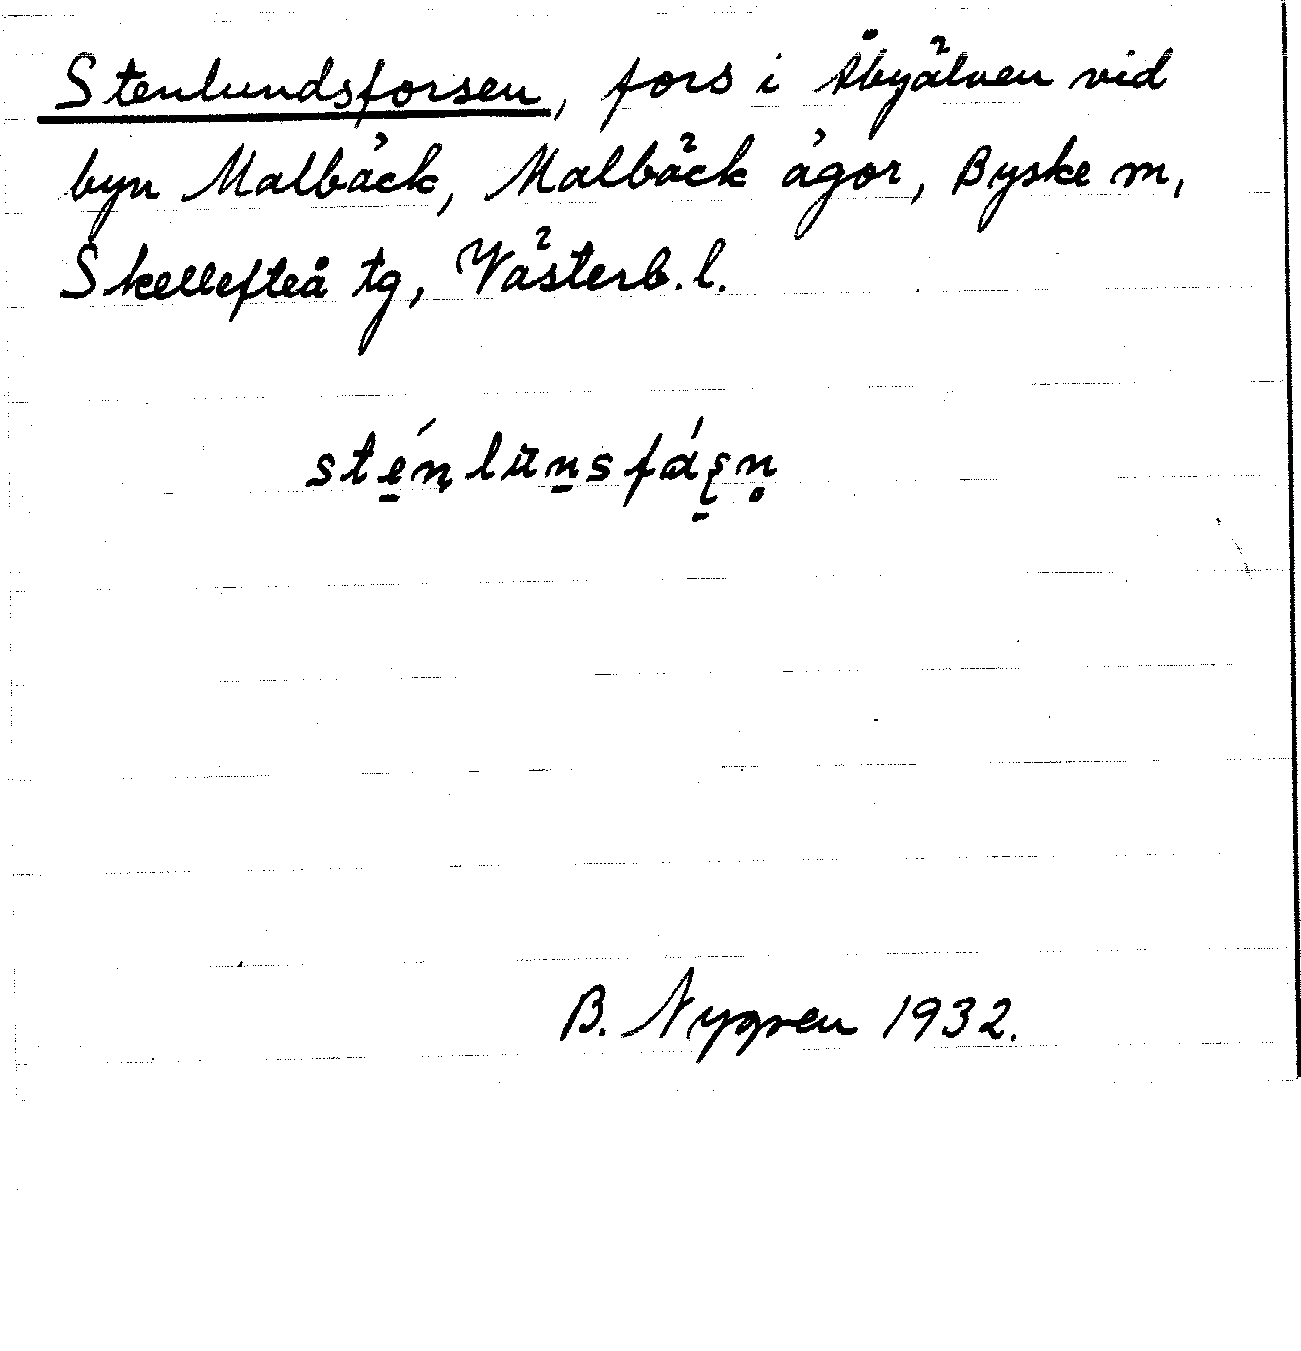 Stenlundsforsen, fors i Åbyälven vid
byn Malbäck, Malbäck ägor, Byske sn,
Skellefteå tg, Västerb. l.
sté̠n̩lūn̠sfáʂ̠n̥
B. Nygren 1932.